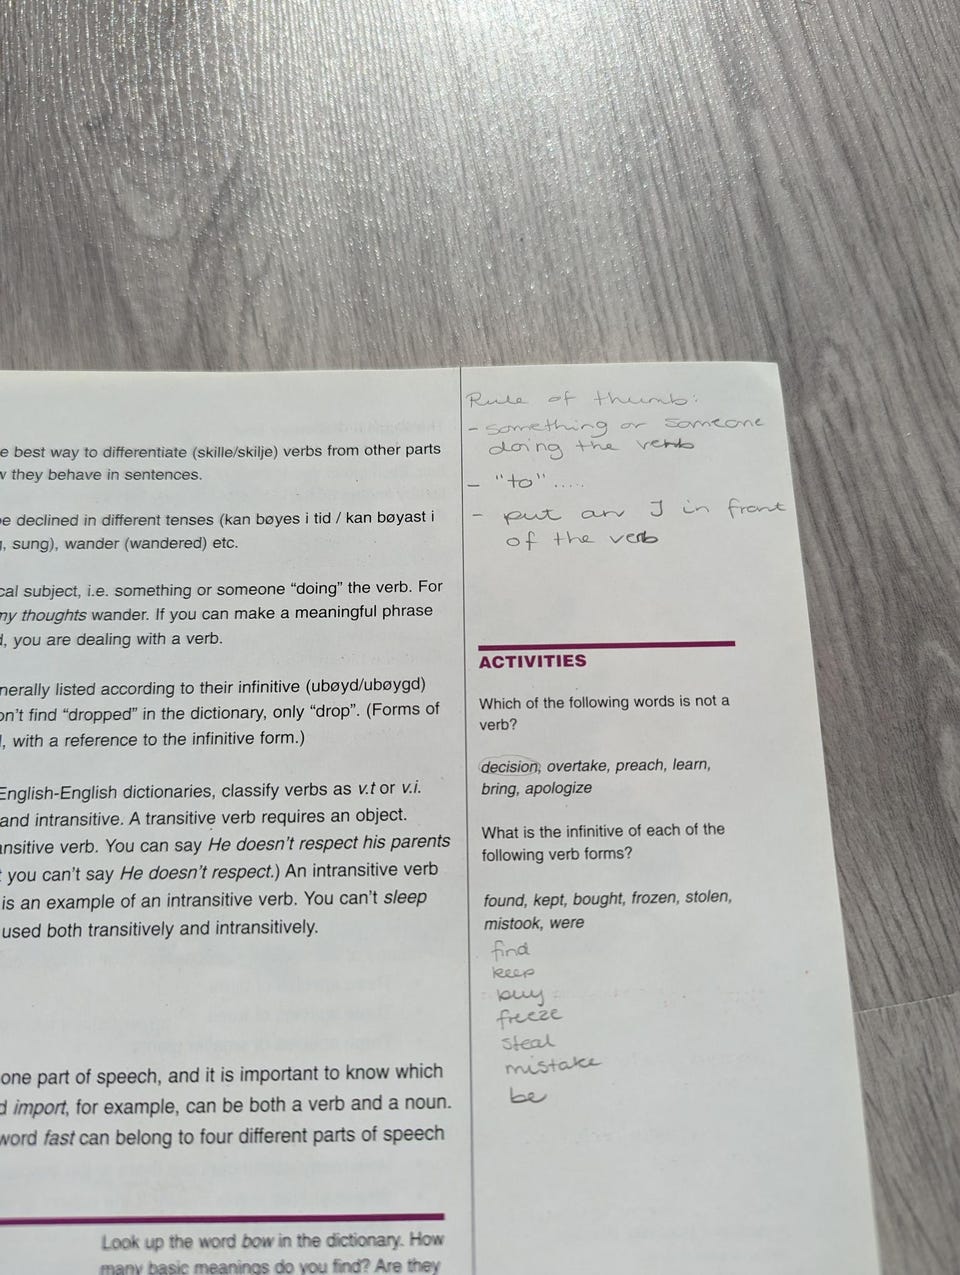 e best way to differentiate (skille/skilje) verbs from other parts
w they behave in sentences.
e declined in different tenses (kan bøyes i tid / kan bøyast i
, sung), wander (wandered) etc.
cal subject, i.e. something or someone “doing” the verb. For
my thoughts wander. If you can make a meaningful phrase
, you are dealing with a verb.
nerally listed according to their infinitive (ubøyd/ubøygd)
on’t find “dropped” in the dictionary, only “drop”. (Forms of
, with a reference to the infinitive form.)
English-English dictionaries, classify verbs as v.t or v.i.
and intransitive. A transitive verb requires an object.
ansitive verb. You can say He doesn’t respect his parents
t you can’t say He doesn’t respect.) An intransitive verb
is an example of an intransitive verb. You can’t sleep
used both transitively and intransitively.
one part of speech, and it is important to know which
d import, for example, can be both a verb and a noun.
word fast can belong to four different parts of speech
Look up the word bow in the dictionary. How
many basic meanings do you find? Are they
Rule of thumb:
- something or someone
doing the verb
- "to".....
- put an I in front
of the verb
ACTIVITIES
Which of the following words is not a
verb?
decision, overtake, preach, learn,
bring, apologize
What is the infinitive of each of the
following verb forms?
found, kept, bought, frozen, stolen,
mistook, were
find
keep
buy
freeze
steal
mistake
be